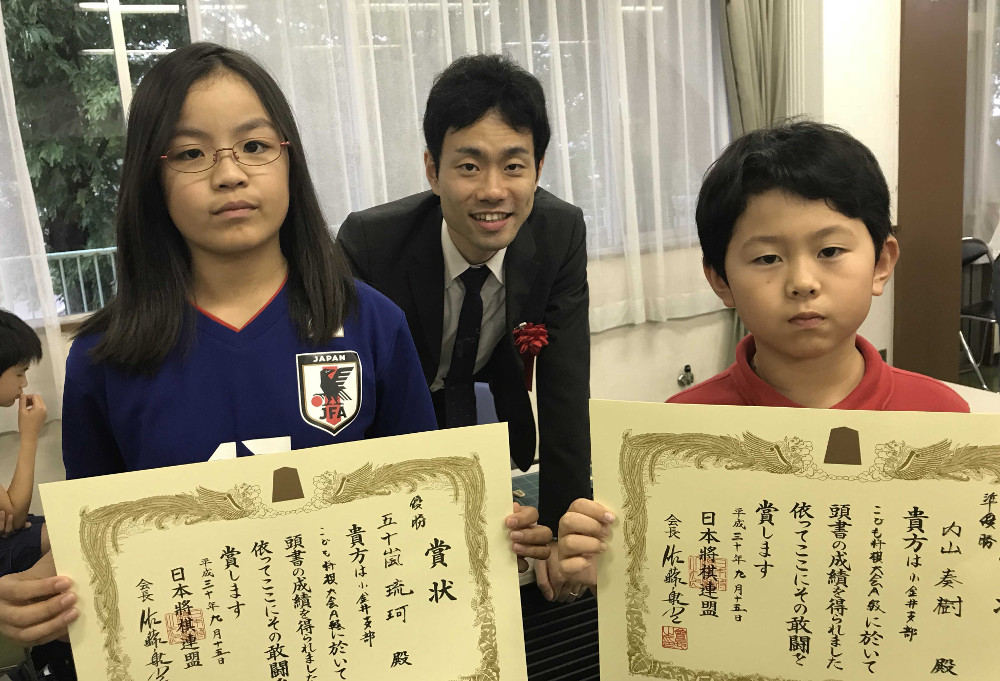 JAPAN
JFA
賞状
優勝
五十嵐 琉珂 殿
貴方は小金井支部
こども将棋大会A級に於いて
頭書の成績を得られました
依ってここにその敢闘を
賞します
平成三十年九月十五日
日本將棋連盟
会長 佐藤康光
準優勝
内山 奏樹 殿
貴方は小金井支部
こども将棋大会A級に於いて
頭書の成績を得られました
依ってここにその敢闘を
賞します
平成三十年九月十五日
日本將棋連盟
会長 佐藤康光